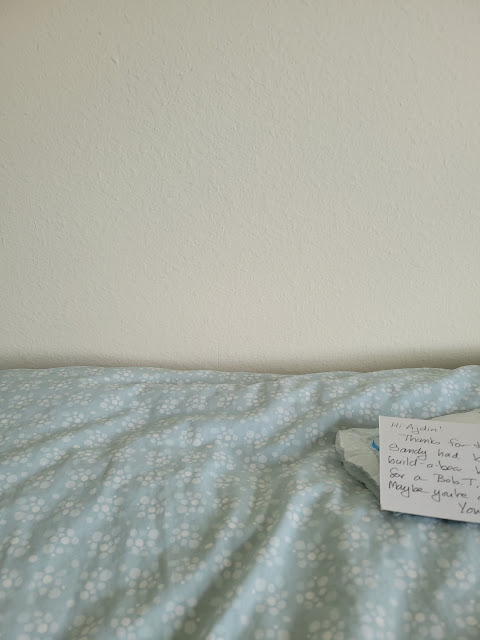 Hi Aydin!
Thanks for
Sandy had
build-a-bear
for a Bob-T
Maybe you're
You